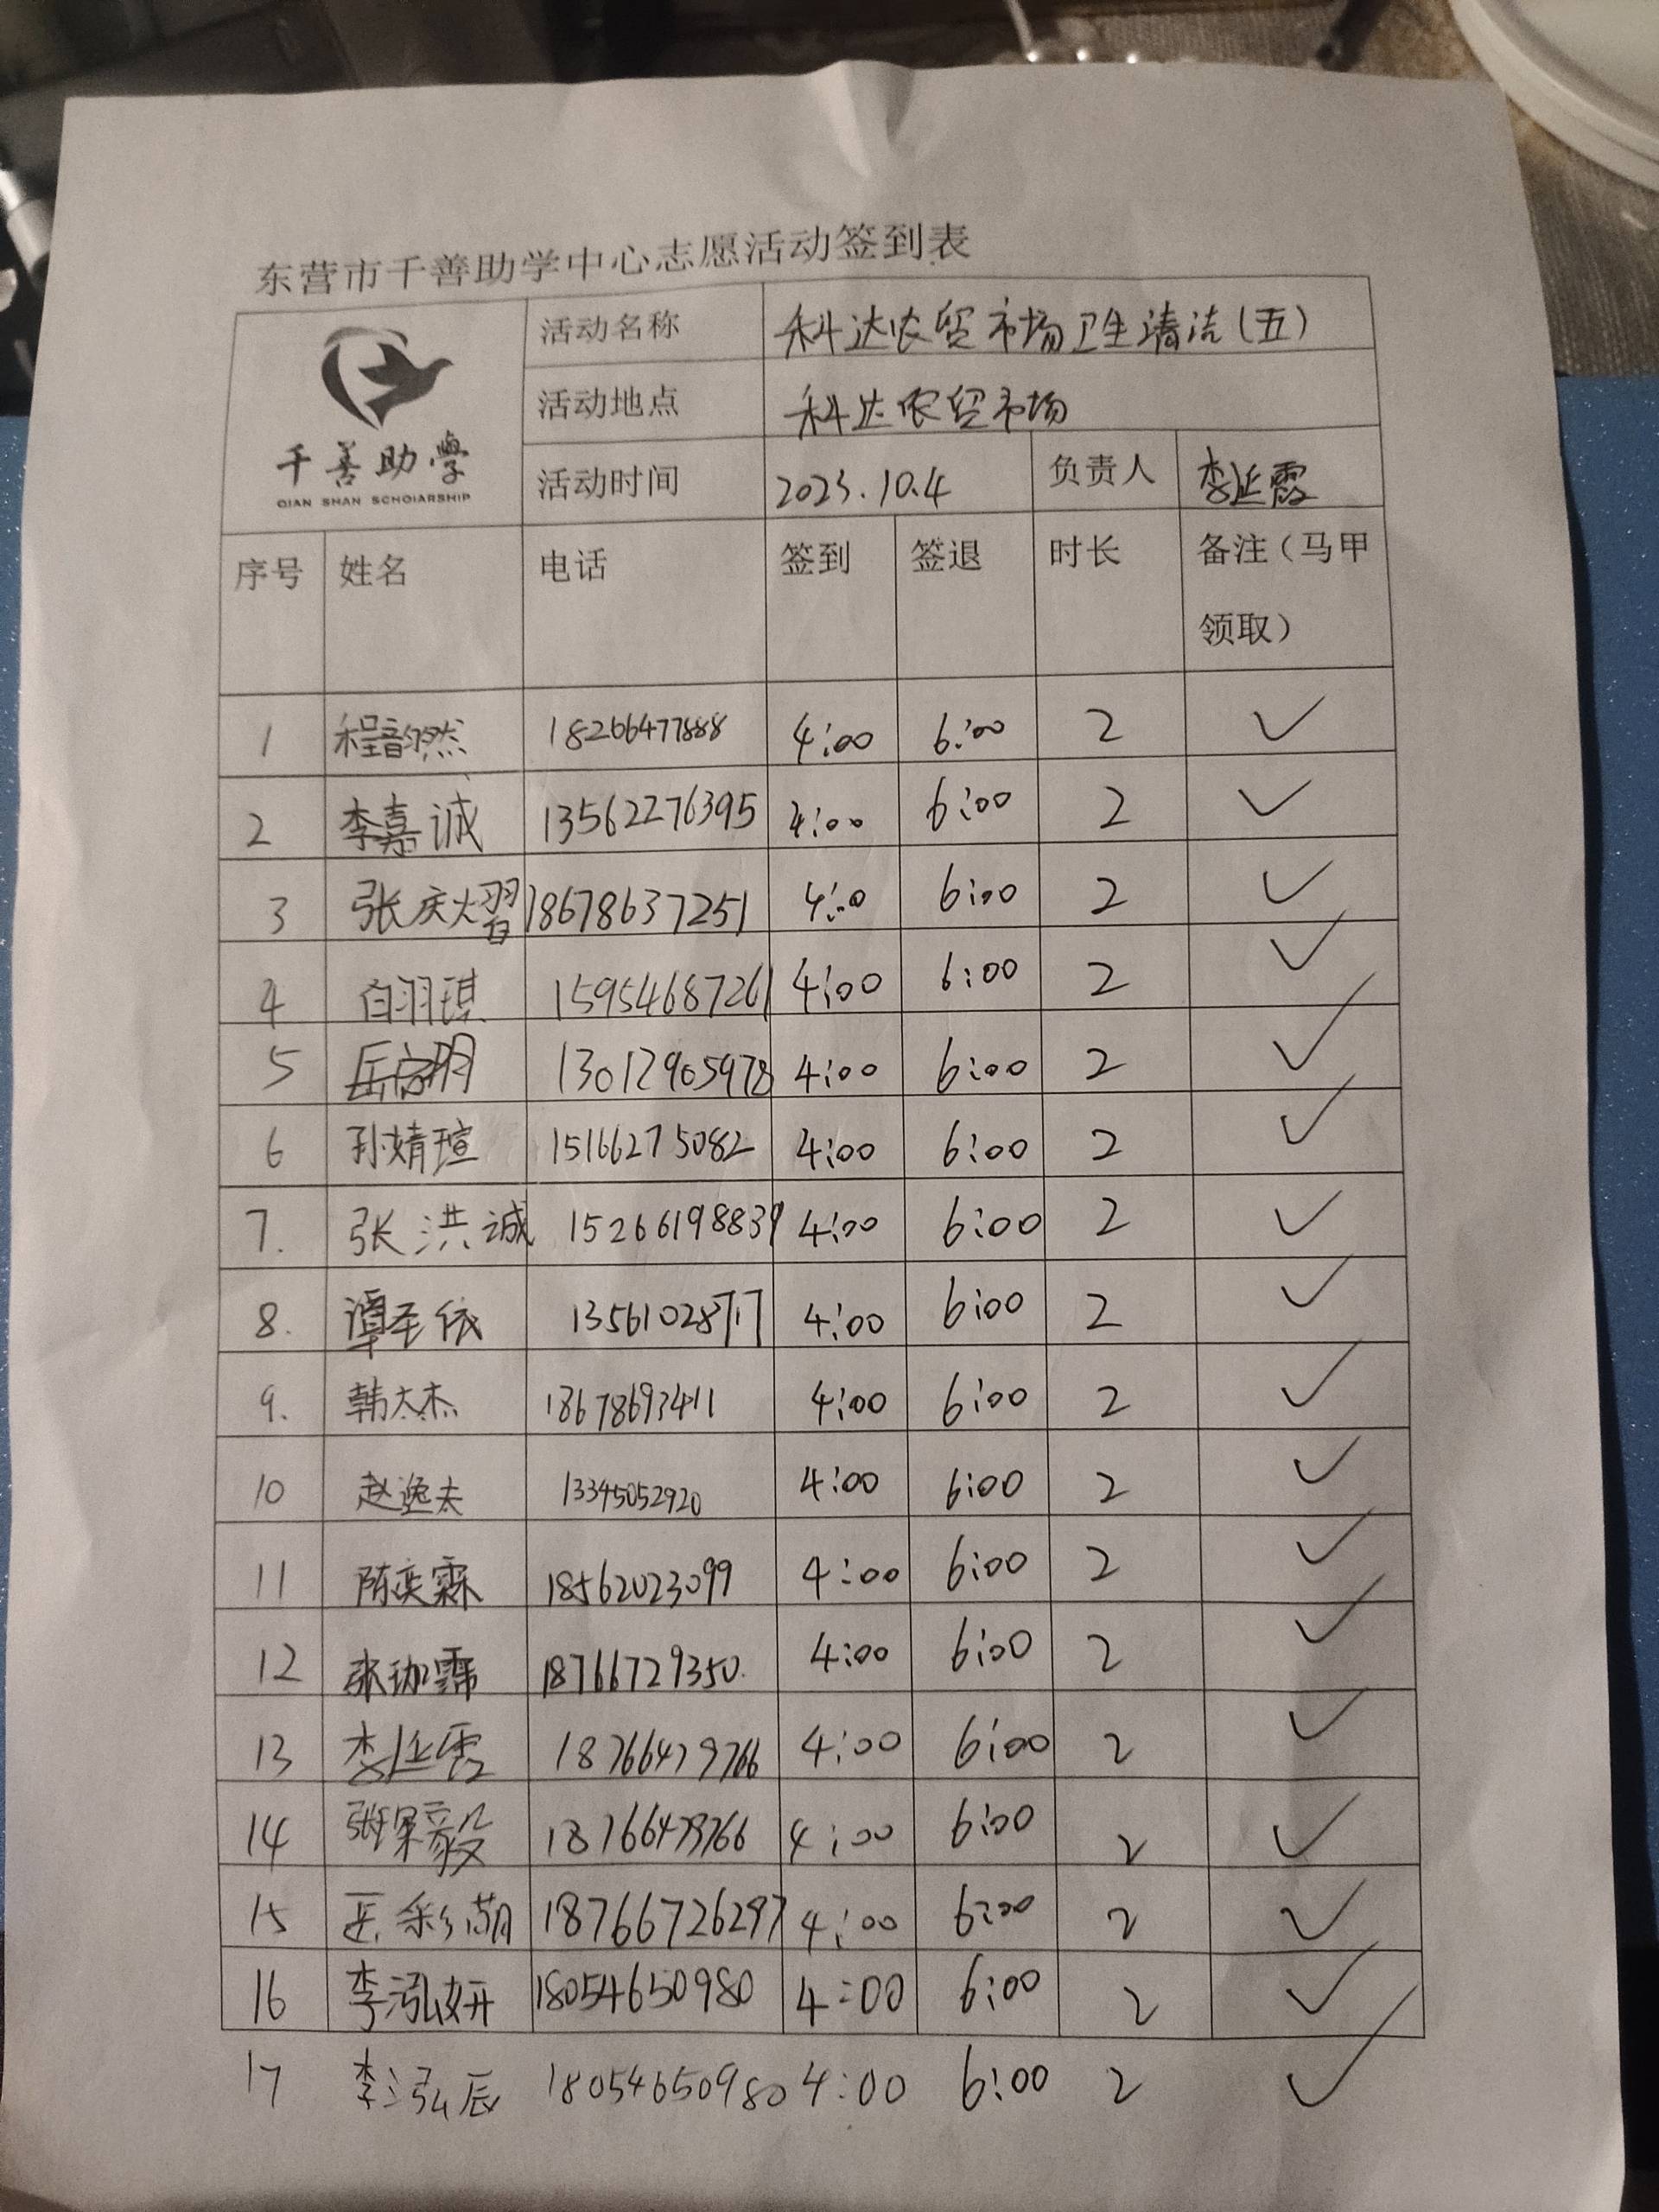 东营市千善助学中心志愿活动签到表
千善助學
QIAN SHAN SCHOLARSHIP
活动名称 科达农贸市场卫生清洁(五)
活动地点 科达农贸市场
活动时间 2023.10.4 负责人 李延霞
序号 姓名 电话 签到 签退 时长 备注(马甲领取)
1 程韵然 18266477888 4:00 6:00 2 ✓
2 李嘉诚 13562276395 4:00 6:00 2 ✓
3 张庆熠 18678637251 4:00 6:00 2 ✓
4 白羽琪 15954687261 4:00 6:00 2 ✓
5 13012905978 4:00 6:00 2 ✓
6 孙婧瑄 15166275082 4:00 6:00 2 ✓
7. 张洪诚 15266198839 4:00 6:00 2 ✓
8. 13561028717 4:00 6:00 2 ✓
9. 韩太杰 18678693411 4:00 6:00 2 ✓
10 赵逸夫 13345052920 4:00 6:00 2 ✓
11 陈奕霖 18562023099 4:00 6:00 2 ✓
12 张珈霈 18766729350. 4:00 6:00 2 ✓
13 李延霞 18766479766 4:00 6:00 2 ✓
14 张果毅 18766479766 4:00 6:00 2 ✓
15 18766726297 4:00 6:00 2 ✓
16 李泓妍 18054650980 4:00 6:00 2 ✓
17 李泓辰 18054650980 4:00 6:00 2 ✓